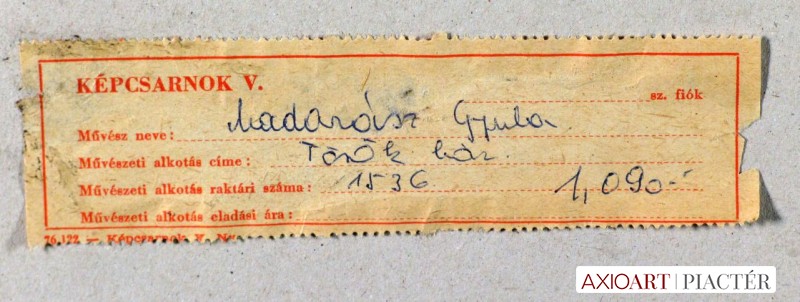 KÉPCSARNOK V.
sz. fiók
Művész neve: Madarász Gyula
Művészeti alkotás címe: Török ház.
Művészeti alkotás raktári száma: 1536
1,090.-
Művészeti alkotás eladási ára:
76.122 — Képcsarnok V. Ny.
AXIOART | PIACTÉR